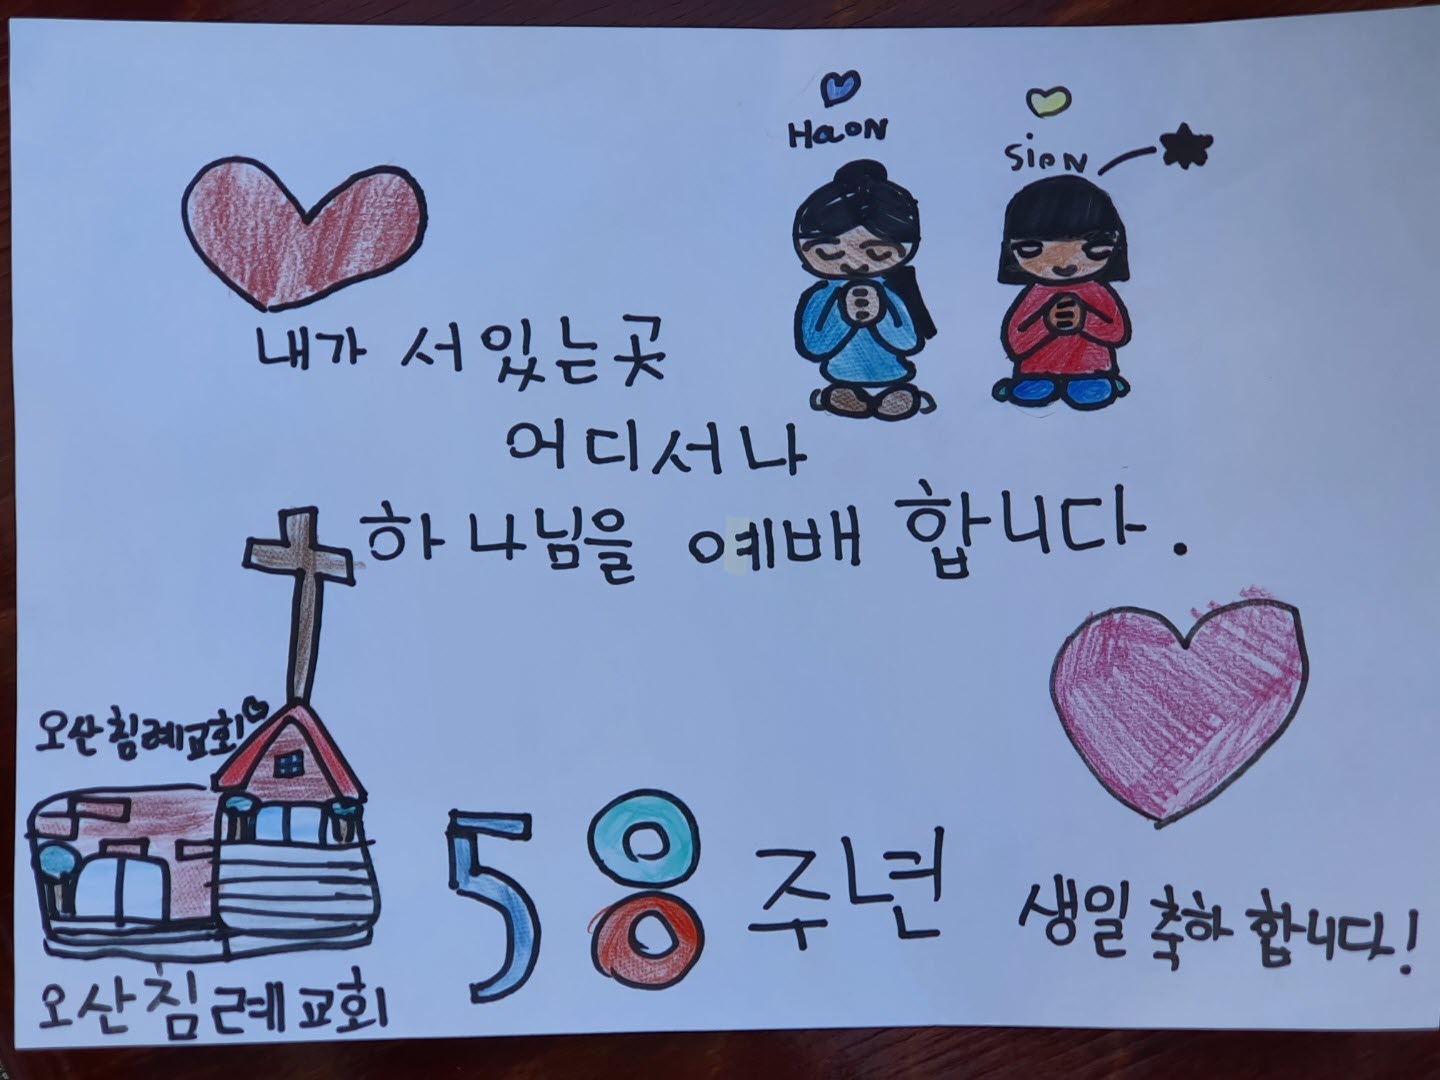 Haon
Sion
내가 서있는곳
어디서나
하나님을 예배 합니다.
오산침례교회
58주년 생일 축하 합니다!
오산침례교회